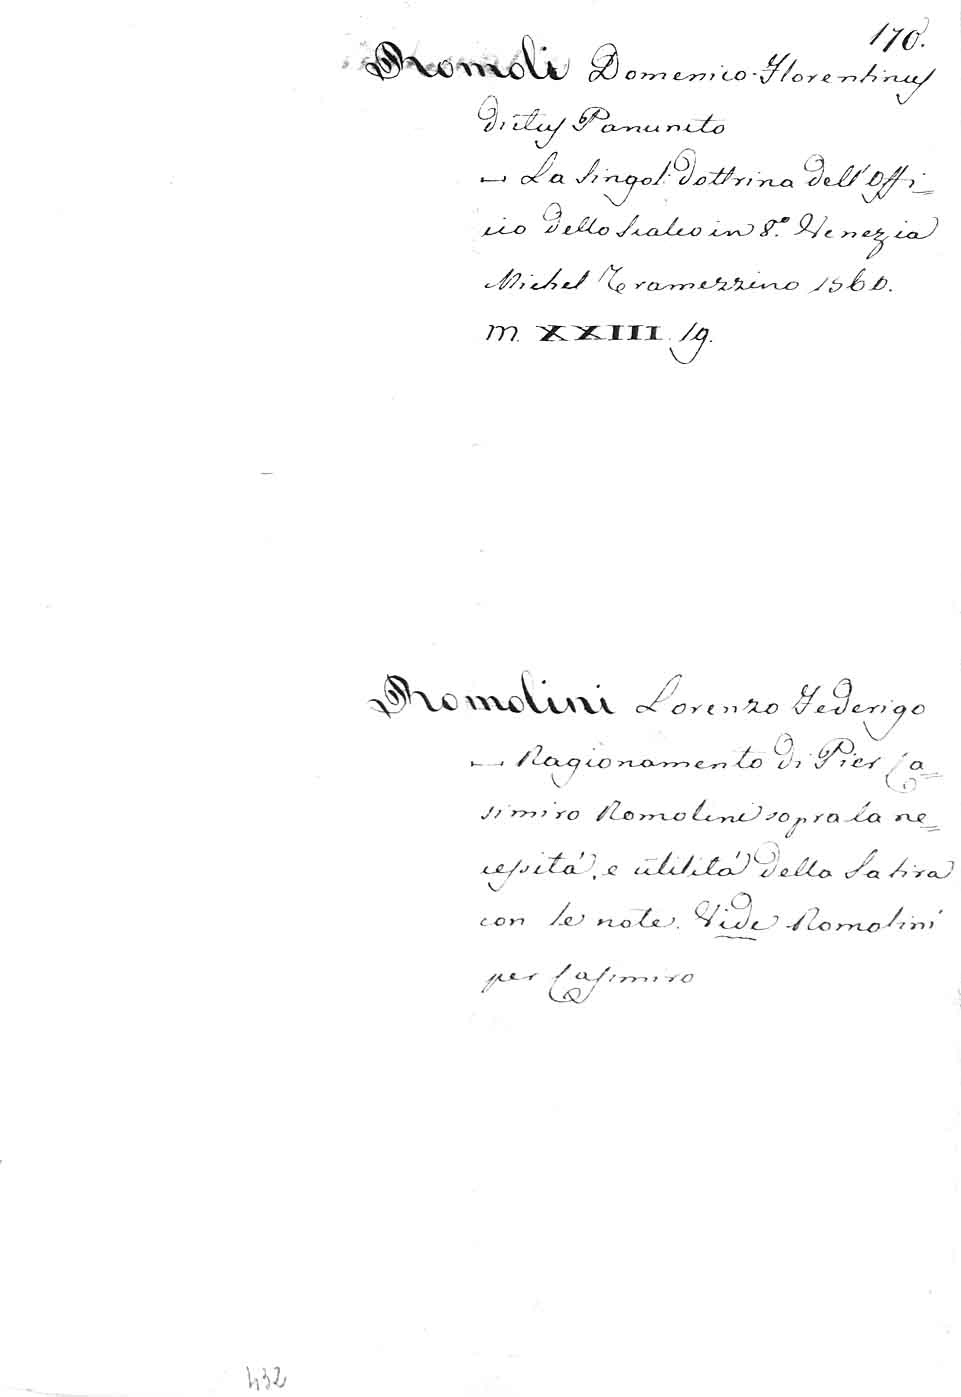 170.
Romoli Domenico Florentinus
dictus Panunto
— La singol. dottrina dell' Offi=
cio dello Scalco in 8.º Venezia
Michel Tramezzino 1560.
M. XXIII. 19.
Romolini Lorenzo Federigo
— Ragionamento di Pier Ca=
simiro Romolini sopra la ne=
cessità, e utilità della Satira
con le note. Vide Romolini
pier Casimiro
432